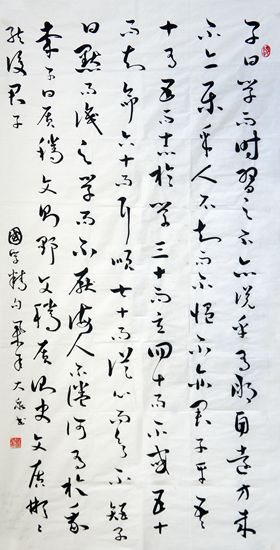 子曰学而时習之不亦说乎有朋自遠方来
不亦乐乎人不知而不愠不亦君子乎吾
十有五而志於学三十而立四十而不惑五十
而知命六十而耳順七十而從心所欲不矩子
曰默而識之学而不厭誨人不倦何有於我
哉子曰质勝文则野文勝质则史文质彬彬
然後君子
國学精句 大泉书